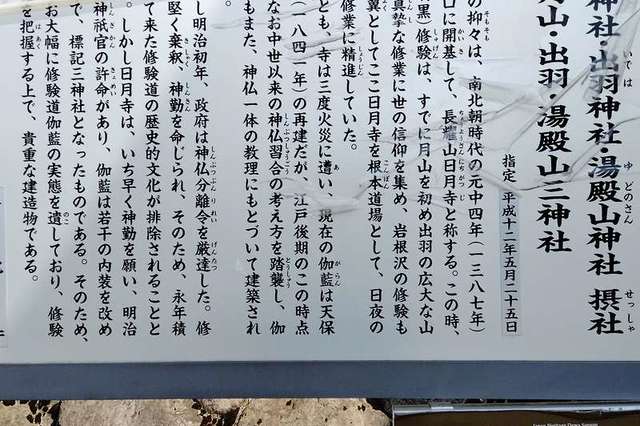 神社・出羽神社・湯殿山神社 摂社
月山・出羽・湯殿山三神社
指定 平成十二年五月二十五日
の抑々は、南北朝時代の元中四年(一三八七年)
口に開基して、長耀山日月寺と称する。この時、
黒)修験は、すでに月山を初め出羽の広大な山
真摯な修業に世の信仰を集め、岩根沢の修験も
翼としてここ日月寺を根本道場として、日夜の
修業に精進していた。
とも、寺は三度火災に遭い、現在の伽藍は天保
(一八四一年)の再建だが、江戸後期のこの時点
なお中世以来の神仏習合の考え方を踏襲し、伽
もまた、神仏一体の教理にもとづいて建築され
し明治初年、政府は神仏分離令を厳達した。修
堅く棄釈、神勤を命じられ、そのため、永年積
て来た修験道の歴史的文化が排除されることと
。しかし日月寺は、いち早く神勤を願い、明治
神祇官の許命があり、伽藍は若干の内装を改め
で、標記三神社となったものである。そのため、
お大幅に修験道伽藍の実態を遺しており、修験
を把握する上で、貴重な建造物である。